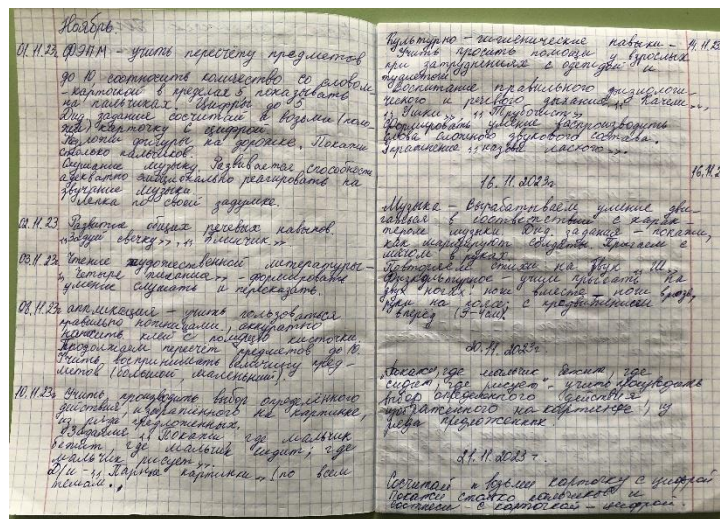 Ноябрь.
01.11.23г. ФЭПМ – учить пересчету предметов
до 10 соотносить количество со словом
-карточкой в пределах 5 показывать
на пальчиках. Цифры до 5.
Дид. задание сосчитай и возьми (поло-
жи) карточку с цифрой.
Разложи фигуры на дорожке. Покажи
столько пальчиков.
Слушание музыки. Развивается способность
адекватно эмоционально реагировать на
звучание музыки
Лепка по своей задумке.
02.11.23 Развитие общих речевых навыков.
„Задуй свечку", „
03.11.23 Чтение художественной литературы -
„Четыре желания" - формировать
умение слушать и пересказать.
08.11.23г аппликаций - учить пользоваться
правильно ножницами, аккуратно
клей с помощью кисточки.
Продолжаем пересчет предметов до 10.
Учить воспринимать величину пред-
метов (большой, маленький).
10.11.23г Учить, производить выбор определённого
действия, изображённого на картинке,
из ряда предложенных.
Задание „Покажи где мальчик
бежит, где мальчик сидит, где
мальчик рисует".
Д/и -„Парные картинки" (по всем
темам.
Культурно - гигиенические навыки - 14.11.2
Учить просить помощи у взрослых
при затруднениях с одеждой и
туалетом
Воспитание правильного физиологи-
ческого и речевого дыхания „Качели",
„Ушки", „Трубочист"
Формировать умение воспроизводить
слова сложного звукового состава.
Упражнение „назови ласково".
16.11.2
16.11.2023г
Музыка - Вырабатываем умение дви-
гаться в соответствии с харак-
тером музыки. Дид. задания - покажи,
как маршируют солдаты Прыгаем с
мячом в руках.
Повторяем стихи на звук Ш.
Физкультурное учили прыгать на
двух ногах, ноги вместе - ноги врозь,
руки на пояса; с продвижением
вперёд (3-4см)
20.11.2023г
Покажи, где мальчик бежит, где
сидит, где рисует - учить производить
выбор определенного действия
изображенного на картинке, из
ряда предложенных
21.11.2023г
Сосчитай и возьми карточку с цифрой
Покажи столько пальчиков и
с карточкой - цифрой.